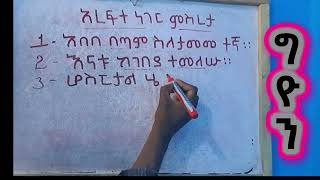 አረፍተ ነገር ምስረታ
1 - አበበ በጣም ስለታመመ ተኛ ።
2 - እናቱ ከገበያ ተመለሠ ።
3 - ሆስፒታል ሄ
ግዮን